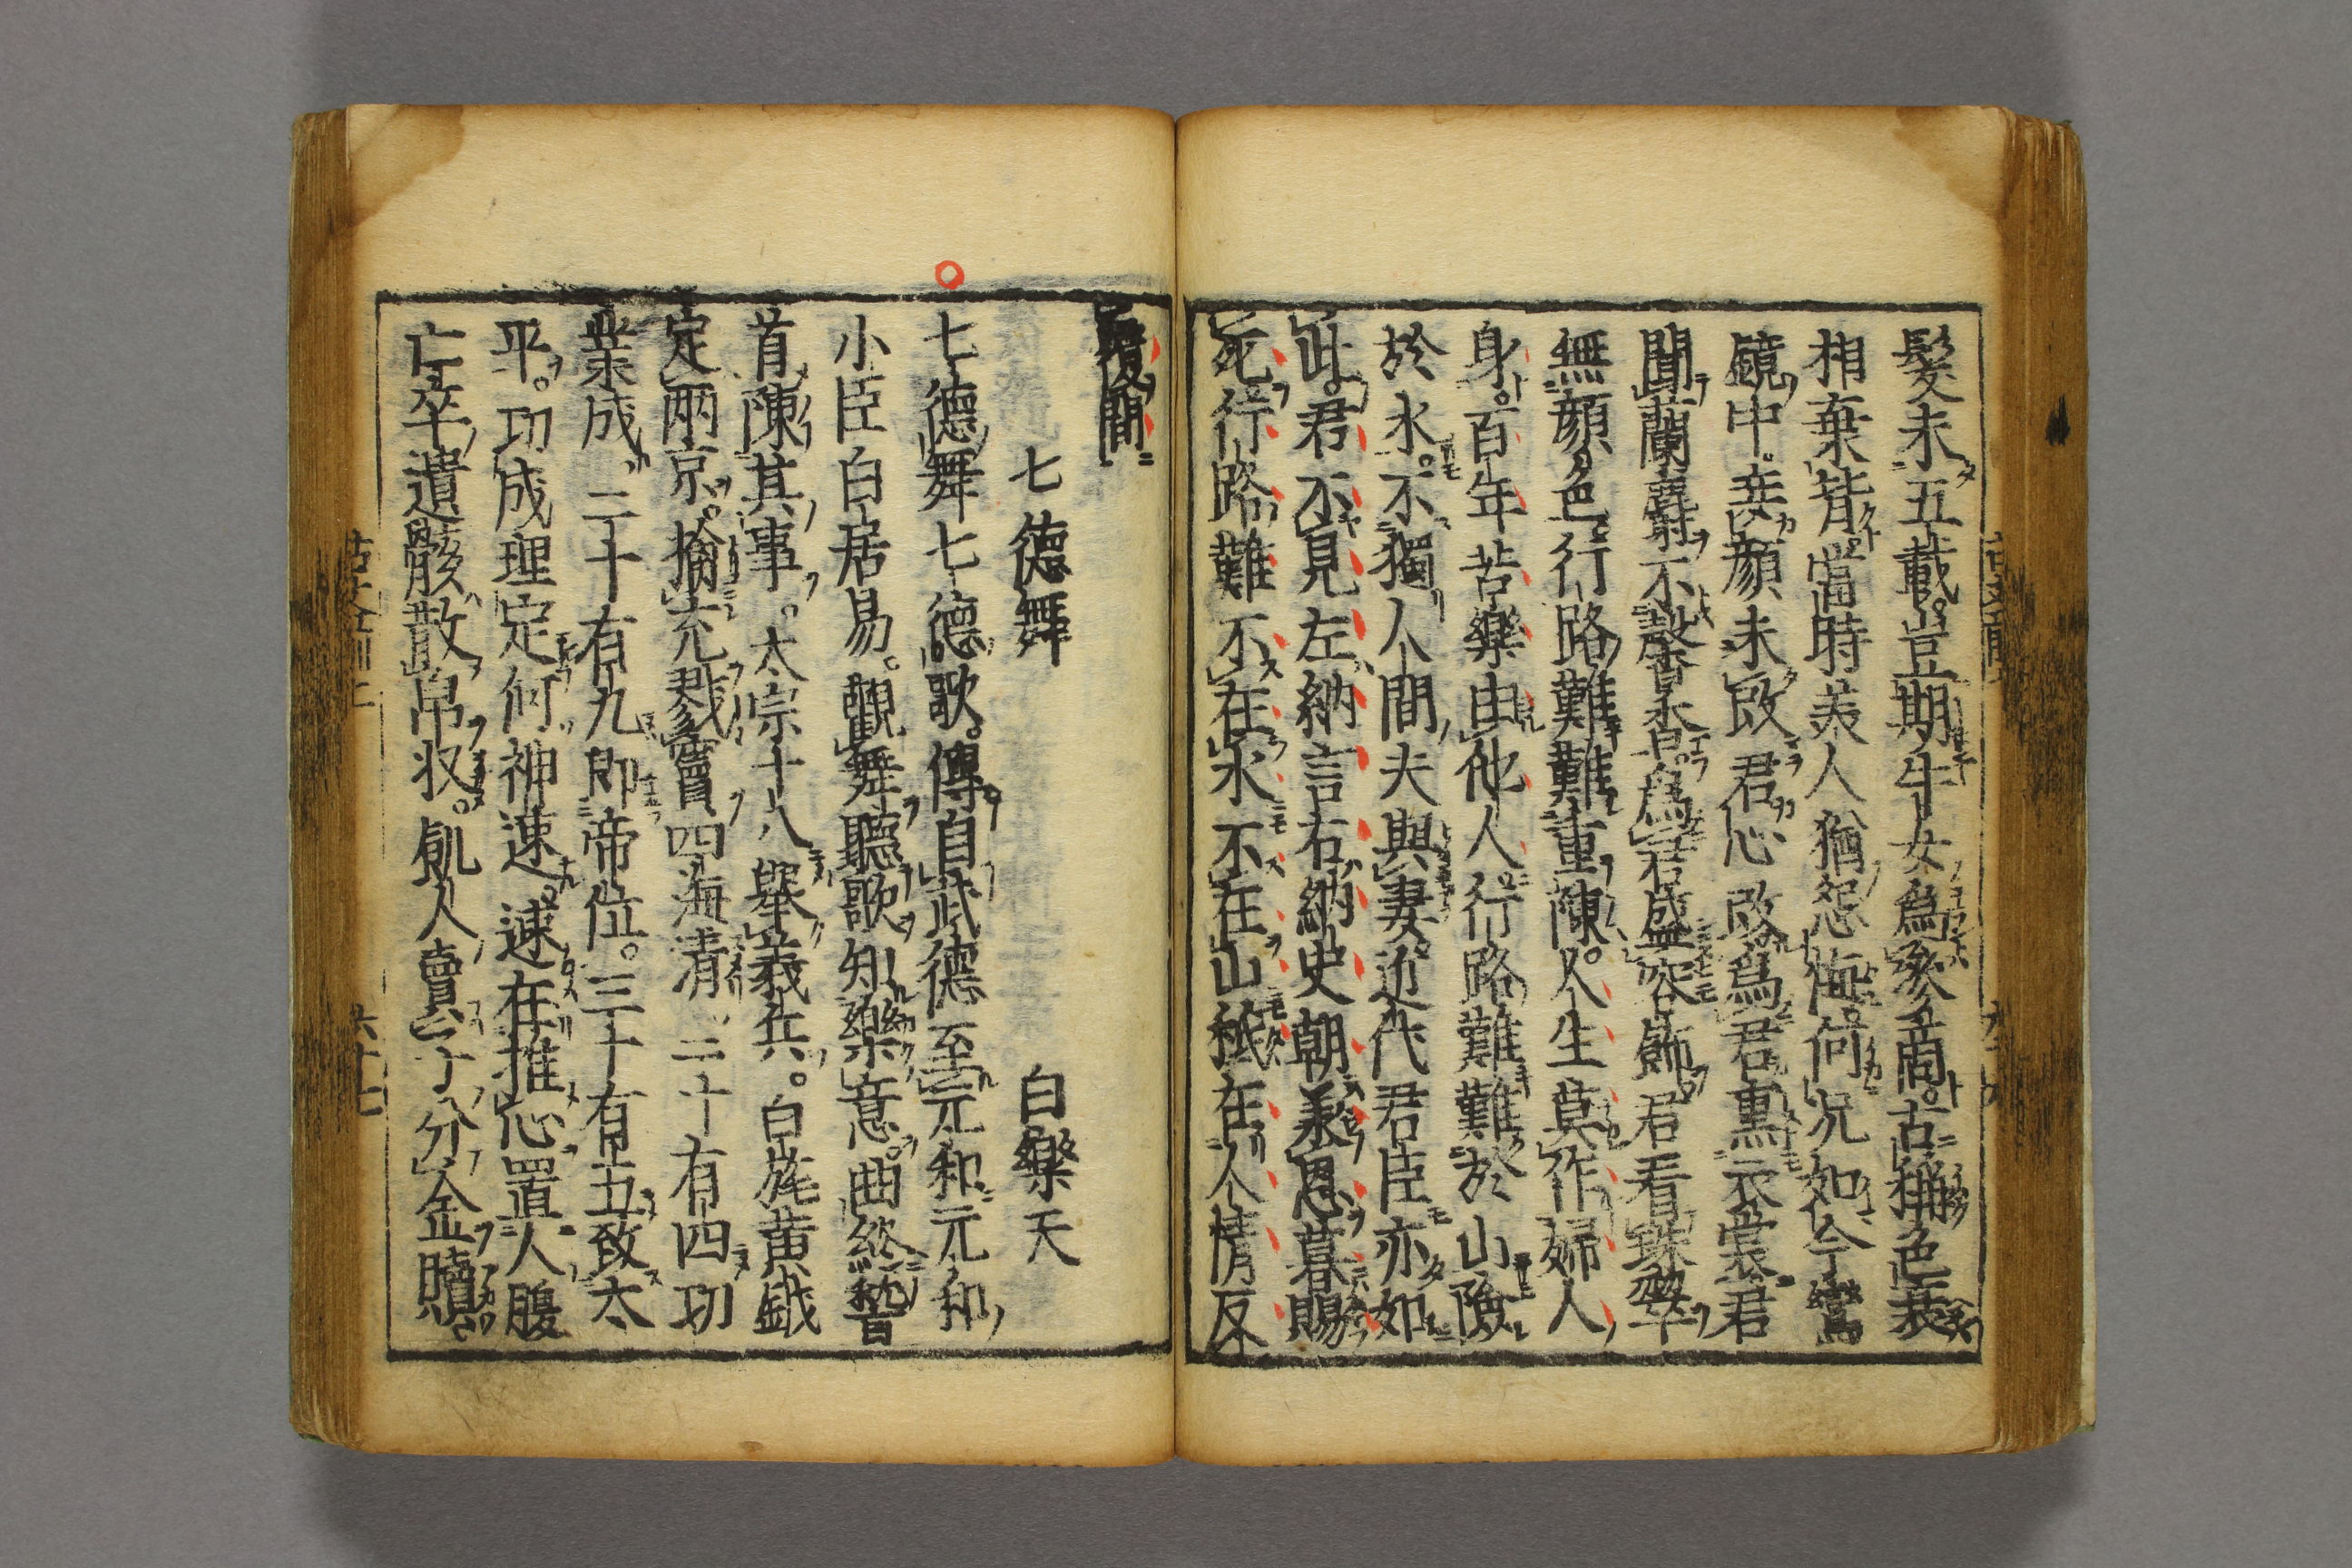 髮未五載豈期牛女爲參商古稱色衰
相棄背當時美人猶怨悔何况如今鸞
鏡中妾顔未改君心改爲君熏衣裳君
聞蘭麝不馨香爲君盛容飾君看珠翠
無顔色行路難難重陳人生莫作婦人
身百年苦樂由他人行路難難於山險
於水不獨人間夫與妻近代君臣亦如
此君不見左納言右納史朝承恩暮賜
死行路難不在水不在山秖在人情反
覆間
七德舞 白樂天
七德舞七德歌傳自武德至元和元和
小臣白居易觀舞聽歌知樂意曲終稽
首陳其事太宗十八舉義兵白旄黄鉞
定兩京擒充戮竇四海清二十有四功
業成二十有九即帝位三十有五致太
平功成理定何神速速在推心置人腹
亡卒遺骸散帛収飢人賣子分金贖